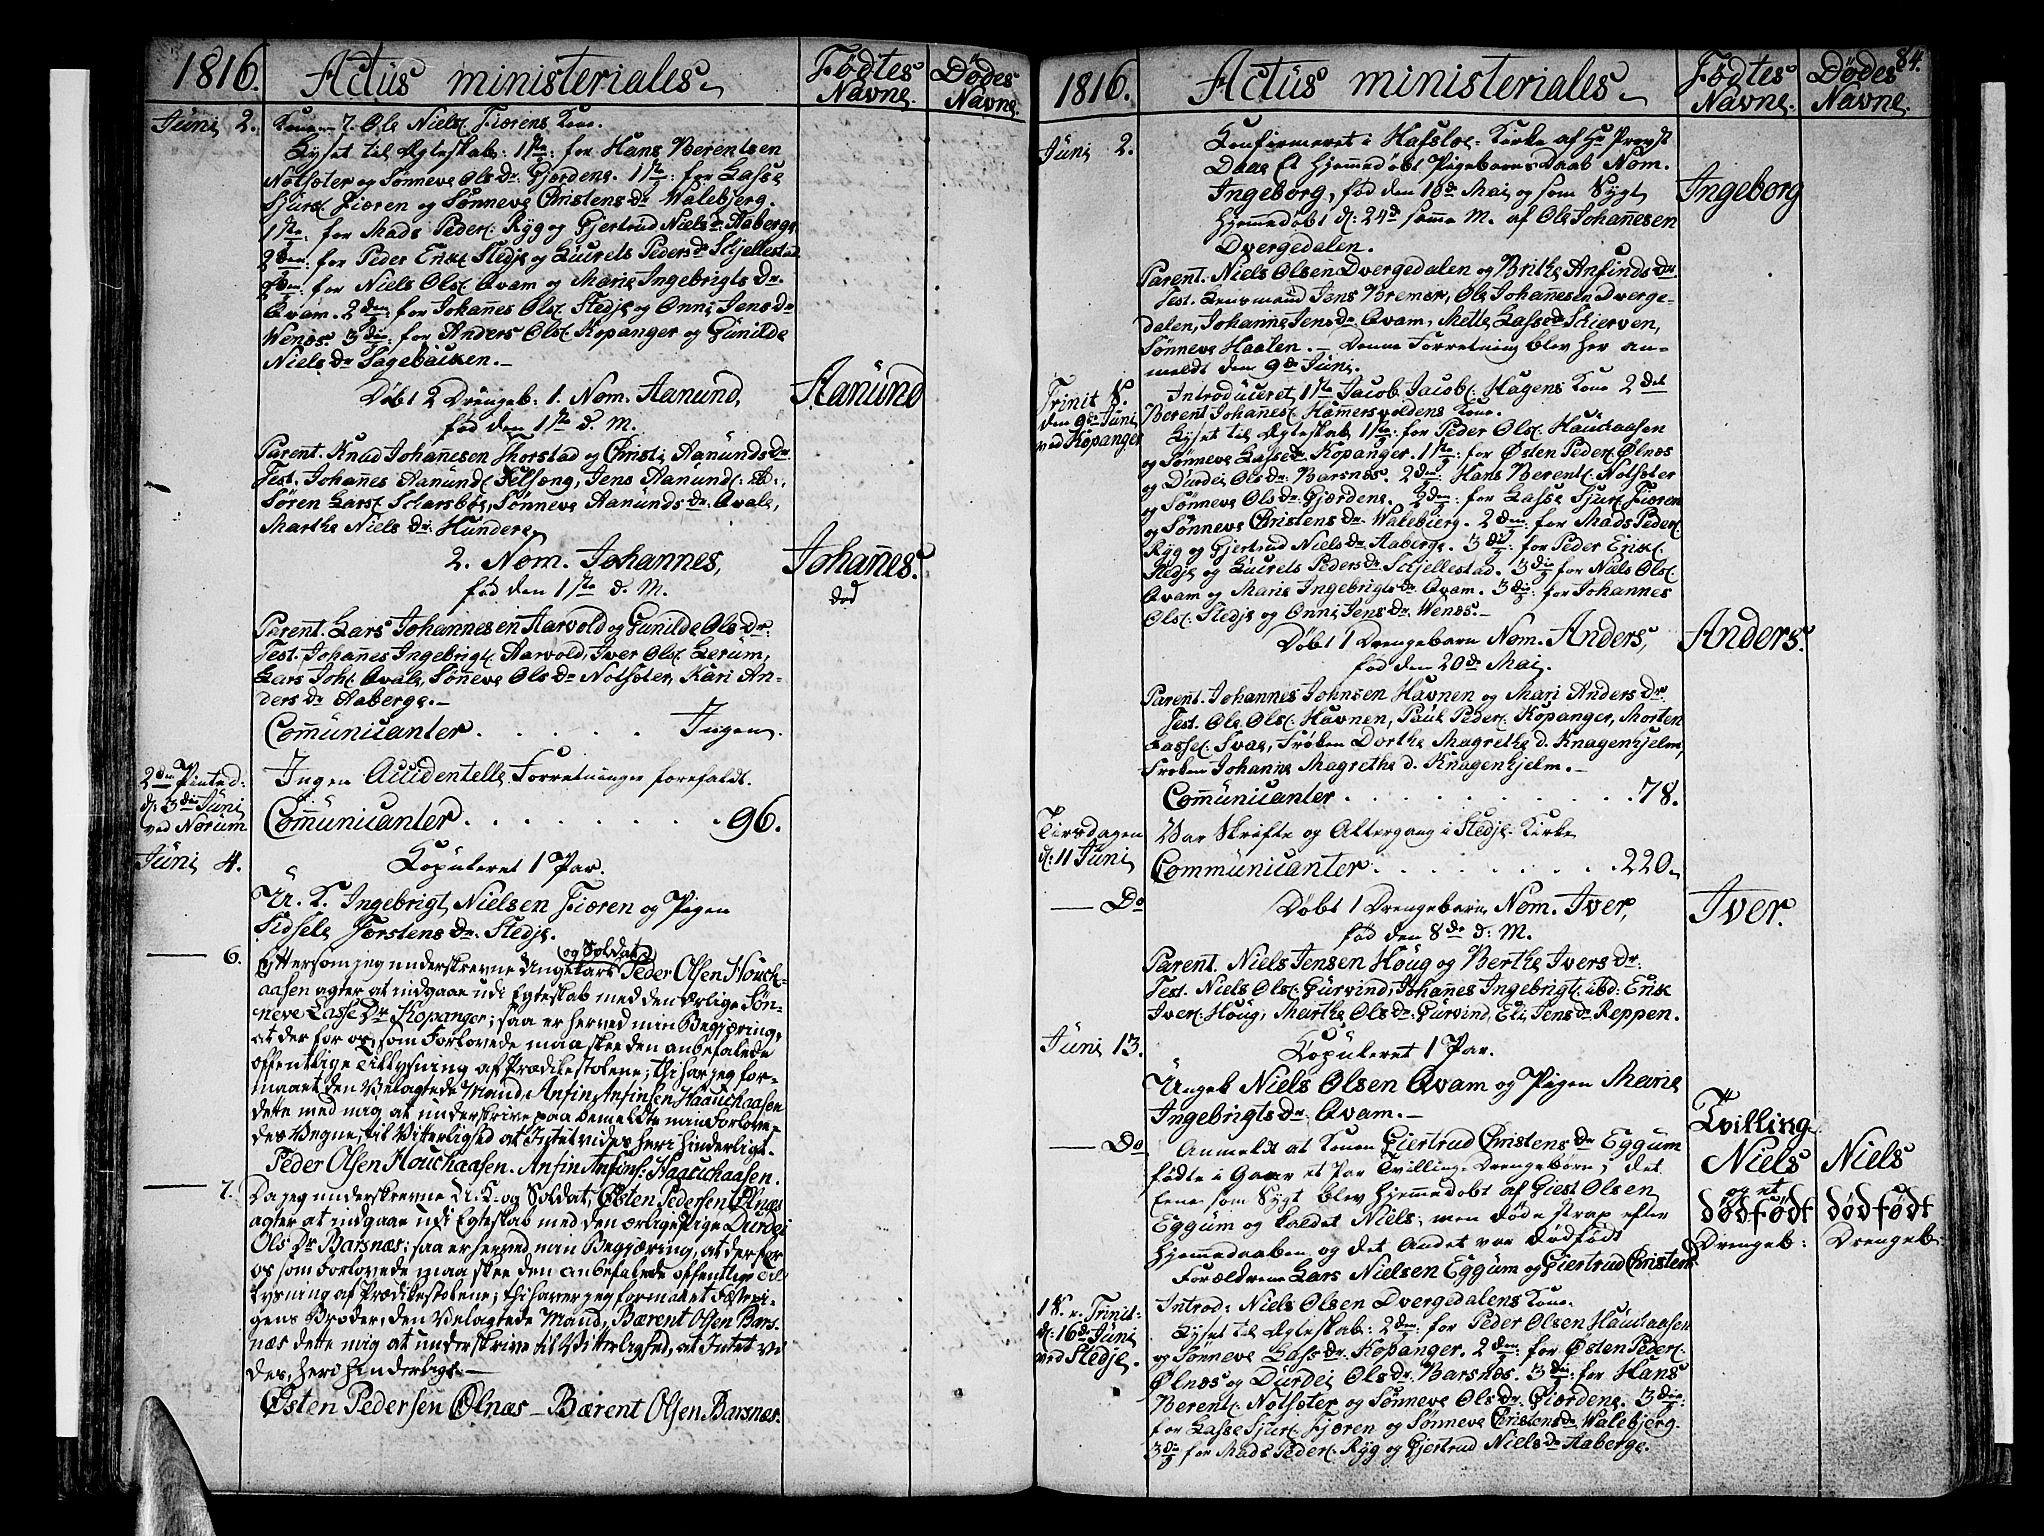 1816. Actus ministeriales Fødtes Navne. Dødes Navne
Juni 2. Kone 7. Ole Niels. Fiærens Kone.
Lyset til Ægteskab: 1ste: for Hans Berentsen
Notsæter og Sønneve Ols Dr. Gjordene. 1ste: for Lasse
Sjurs. Fiæren og Sønneve Christens Dr Walebjerg.
1ste: for Mads Peders. Ryg og Gjertrud Niels Dr. Aaberge
2den: for Peder Erics. Stedje og Guurels Peders Dr Skjellestad
2den: for Niels Ols. Qvam og Marie Ingebrigts Dr
Qvam. 2den: for Johanes Ols. Stedje og Onni Jens Dr
Wenæs. 3die: for Anders Ols. Kopanger og Gunilde
Niels Dr Sagebakken.
Døbt 2 Drengeb: 1. Nom. Aanund, Aanund
fød den 1ste d. M.
Parent. Knud Johanesen Skorstad og Christi Aanunds Dr.
Test. Johanes Aanunds. Felseng, Jens Aanunds:
Søren Lars. Skarsbøe, Sønneve Aanunds Dr. Qvale,
Marthe Niels Dr. Hundere,
2. Nom. Johannes, Johanes.
fød den 1ste d. M. død
Parent. Lars Johannesen Aarvold og Gunilde Ols Dr.
Test. Johanes Ingebrigts. Aarvold, Iver Ols. Lerum,
Lars Joh. Qvale, Søneve Ols Dr Notsæter, Kari An-
ders Dr Aaberge.
Comunicanter . . . . . Ingen.
2den Pintsd:
d. 3die Juni
ved Norum
Ingen Accidentelle Forretninger forefaldt.
Comunicanter . . . . . . . 96.
Juni 4. Kopuleret 1 Par.
U. K. Ingebrigt Nielsen Fiæren og Pigen
Sidsele Torstens Dr. Stedje.
6. og Soldat
Eftersom jeg underskrevne Ungekarl Peder Olsen Houck-
aasen agter at indgaae udi Egteskab med den ærlige Søn-
neve Lasse Dr Kopanger; saa er herved min Begjæring,
at der for os som Forlovede maa skee den anbefalede
offentlige Tillysning af Prædikestolene; thi har jeg for-
maaet den Velagtede Mand Anfin Anfinsen Haauckaasen
dette med mig at underskrive paa bemeldte min Forlove-
des Vegne, til Vitterlighed at Intet vides heri hinderligt.
Peder Olsen Houckaasen. Anfin Anfins: Haauckaasen.
7. Da jeg underskrevne U: K: og Soldat, Østen Pedersen Ølnæs
agter at indgaae udi Egteskab med den ærlige Pige Durdei
Ols Dr Barsnæs; saa er herved min Begjæring, at der for
os som Forlovede maa skee den anbefalede offentlige Til
lysning af Prædikestolene; thi haver jeg formaaet Fæstepi-
gens Broder, den Velagtede Mand, Bærent Olsen Bars-
næs dette mig at underskrive til Vitterlighed, at Intet vi
des, heri hinderligt.
Østen Pedersen Ølnæs – Bærent Olsen Barsnæs.
84.
1816. Actus ministeriales Fødtes Navne. Dødes Navne.
Juni 2. Konfirmeret i Hafsloe Kirke af Hr Provst
Daae et hjemmedøbt Pigebarns Daab Nom.
Ingeborg, fød den 18de Mai og som Sygt Ingeborg
hjemmedøbt d. 24d samme M. af Ole Johanesen
Dvergedalen.
Parent. Niels Olsen Dvergedalen og Brithe Anfinds Dr
Test. Lensmand Jens Bremer, Ole Johanesen Dverge-
dalen, Johanne Jens Dr Qvam, Mette Lasse Dr Skierven,
Sønneve Haalen. – Denne Forretning blev her an-
meldt den 9de Juni.
Trinit S.
den 9de Juni
ved Kopanger
Introduceret 1ste Jacob Jacobs. Hagens Kone 2det
Berent Johanes. Hamersvoldens Kone.
Lyset til Ægteskab 1ste: for Peder Ols. Hauckaasen
og Sønneve Lasse Dr. Kopanger. 1ste: for Østen Peders. Ølnes
og Durdei Ols Dr. Barsnæs. 2den Hans Berents. Notsæter
og Sønneve Ols Dr. Gjærdene. 2den: for Lasse Sjurs. Fiæren
og Sønneve Christens Dr. Walebjerg. 2den: for Mads Peders.
Ryg og Gjertrud Niels Dr. Aaberge. 3die: for Peder Erics.
Stedje og Guurels Peders Dr Skjellestad. 3die for Niels Ols.
Qvam og Marie Ingebrigts Dr. Qvam. 3die: for Johannes
Ols. Stedje og Onni Jens Dr. Wenæs.
Døbt 1 Drengebarn Nom. Anders, Anders.
fød den 20de Mai.
Parent. Johannes Johnsen Havnen og Mari Anders Dr
Test. Ole Ols. Havnen, Paul Peders. Kopanger, Morten
Lasses. Svae, Frøken Dorthe Magrethe d. Knagenhjelm,
Frøken Johanne Magrethe d. Knagenhjelm.
Comunicanter . . . . . . . 78.
Tirsdagen
d. 11 Juni
Var Skrifte og Altergang i Stedje Kirke
Communicanter . . . . . . . 220
Do Døbt 1 Drengebarn Nom. Iver, Iver.
fød den 8de d: M.
Parent. Niels Jensen Høug og Berthe Ivers Dr.
Test. Niels Ols. Gurvind, Johanes Ingebrigts. ibd. Eric
Ivers. Høug, Marthe Ols Dr. Gurvind, Eli Jens Dr Reppen.
Juni 13. Kopuleret 1 Par.
Ungek Niels Olsen Qvam og Pigen Marie
Ingebrigts Dr. Qvam.
Do Anmeldt at Konen Giertrud Christens Dr Eggum
fødte i Gaar et Par Tvilling Drengebørn; det
Eene som Sygt blev hjemmedøbt af Giest Olsen
Eggum og kaldet Niels; men døde strax efter
Hjemmedaaben og det Andet var dødfødt
Forældrene Lars Nielsen Eggum og Giertrud Christens
Tvilling
Niels
og et
dødfødt
Drengeb:
Niels
dødfødt
Drengeb.
1 S. e. Trinit:
d. 16de Juni
ved Stedje.
Introd: Niels Olsen Dvergedalens Kone.
Lyset til Ægteskab: 2den: for Peder Olsen Hauckaasen
og Sønneve Lasse Dr. Kopanger. 2den: for Østen Peders.
Ølnæs og Durdei Ols Dr. Barsnæs. 3die: for Hans
Berents. Notsæter og Sønneve Ols Dr. Gjordene. 3die
for Lasse Sjurs. Fjæren og Sønneve Christens Dr Walebjerg.
3die for Mads Peders. Ryg og Gjertrud Niels Dr Aaberge.